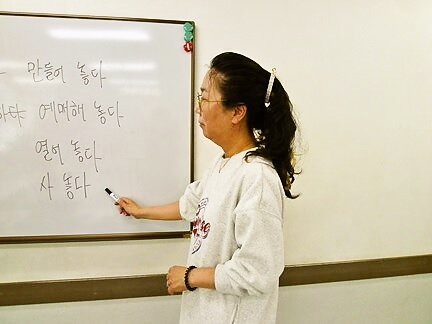 만들어 놓다
하다 예매해 놓다
열어 놓다
사 놓다